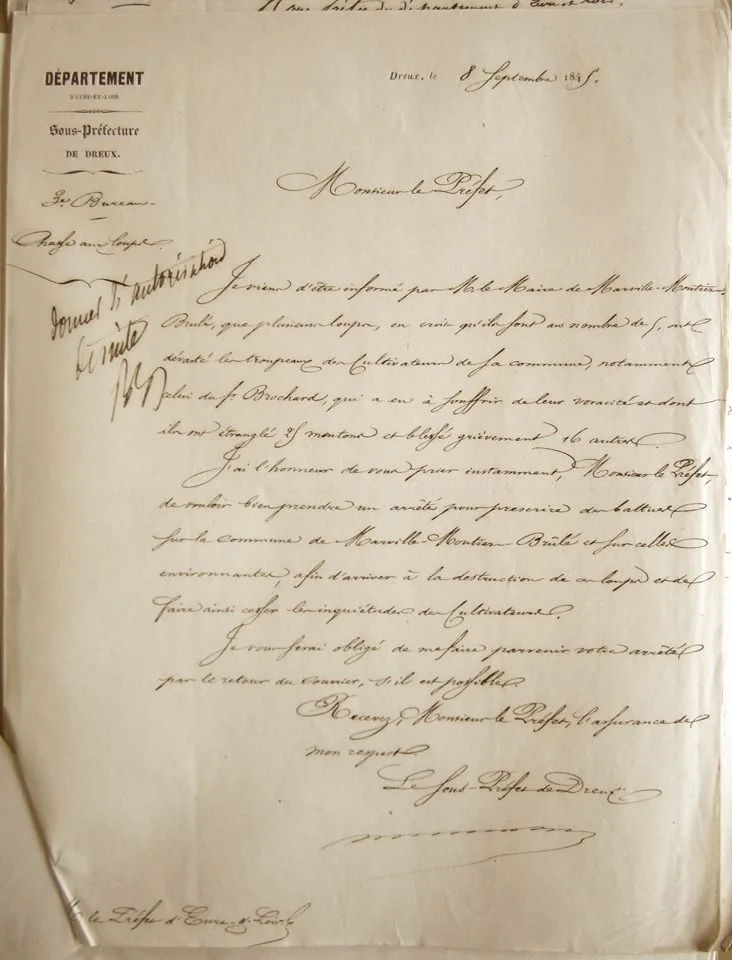 DÉPARTEMENT
D'EURE-ET-LOIR.
Sous-Préfecture
DE DREUX.
3e Bureau
Chasse aux loups
donner l'autorisation
de suite
Dreux, le 8 Septembre 1845.
Monsieur le Préfet,
Je viens d'être informé par M. le Maire de Marville-Moutier-
Brûlé, que plusieurs loups, on croit qu'ils sont au nombre de 5, ont
dévasté les troupeaux des Cultivateurs de sa commune, notamment
celui du Sr Brochard, qui a eu à souffrir de leur voracité et dont
ils ont étranglé 25 moutons et blessé grièvement 16 autres.
J'ai l'honneur de vous prier instamment, Monsieur le Préfet,
de vouloir bien prendre un arrêté pour prescrire des battues
sur la commune de Marville-Moutier-Brûlé et sur celles
environnantes, afin d'arriver à la destruction de ces loups et de
faire ainsi cesser les inquiétudes des Cultivateurs.
Je vous serai obligé de me faire parvenir votre arrêté
par le retour du Courrier, s'il est possible.
Recevez, Monsieur le Préfet, l'assurance de
mon respect.
Le Sous-Préfet de Dreux.
M. le Préfet d'Eure-et-Loir